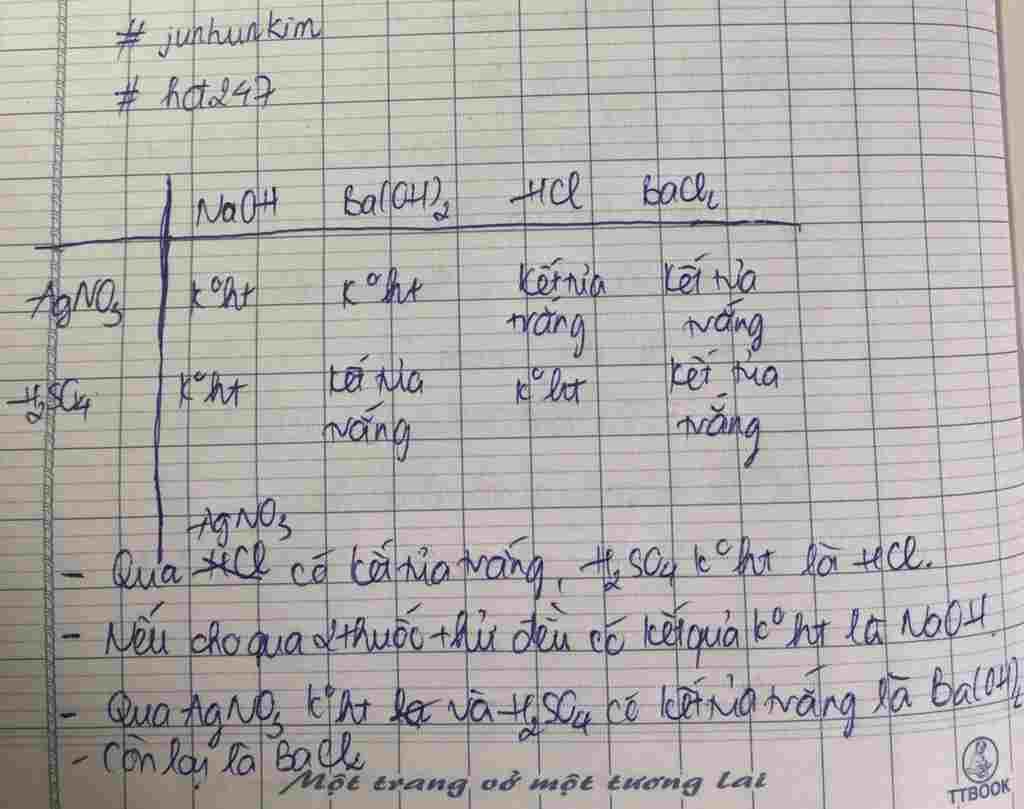 # junhunkim
# hd247
NaOH Ba(OH)₂ HCl BaCl₂
AgNO₃ k° ht k° ht kết tủa trắng kết tủa trắng
H₂SO₄ k° ht kết tủa trắng k° ht kết tủa trắng
AgNO₃
- Qua HCl có kết tủa trắng, H₂SO₄ k° ht là HCl.
- Nếu cho qua 2 thuốc thử đều có kết quả k° ht là NaOH.
- Qua AgNO₃ k° ht và H₂SO₄ có kết tủa trắng là Ba(OH)₂
- Còn lại là BaCl₂
Một trang vở một tương lai
TTBOOK